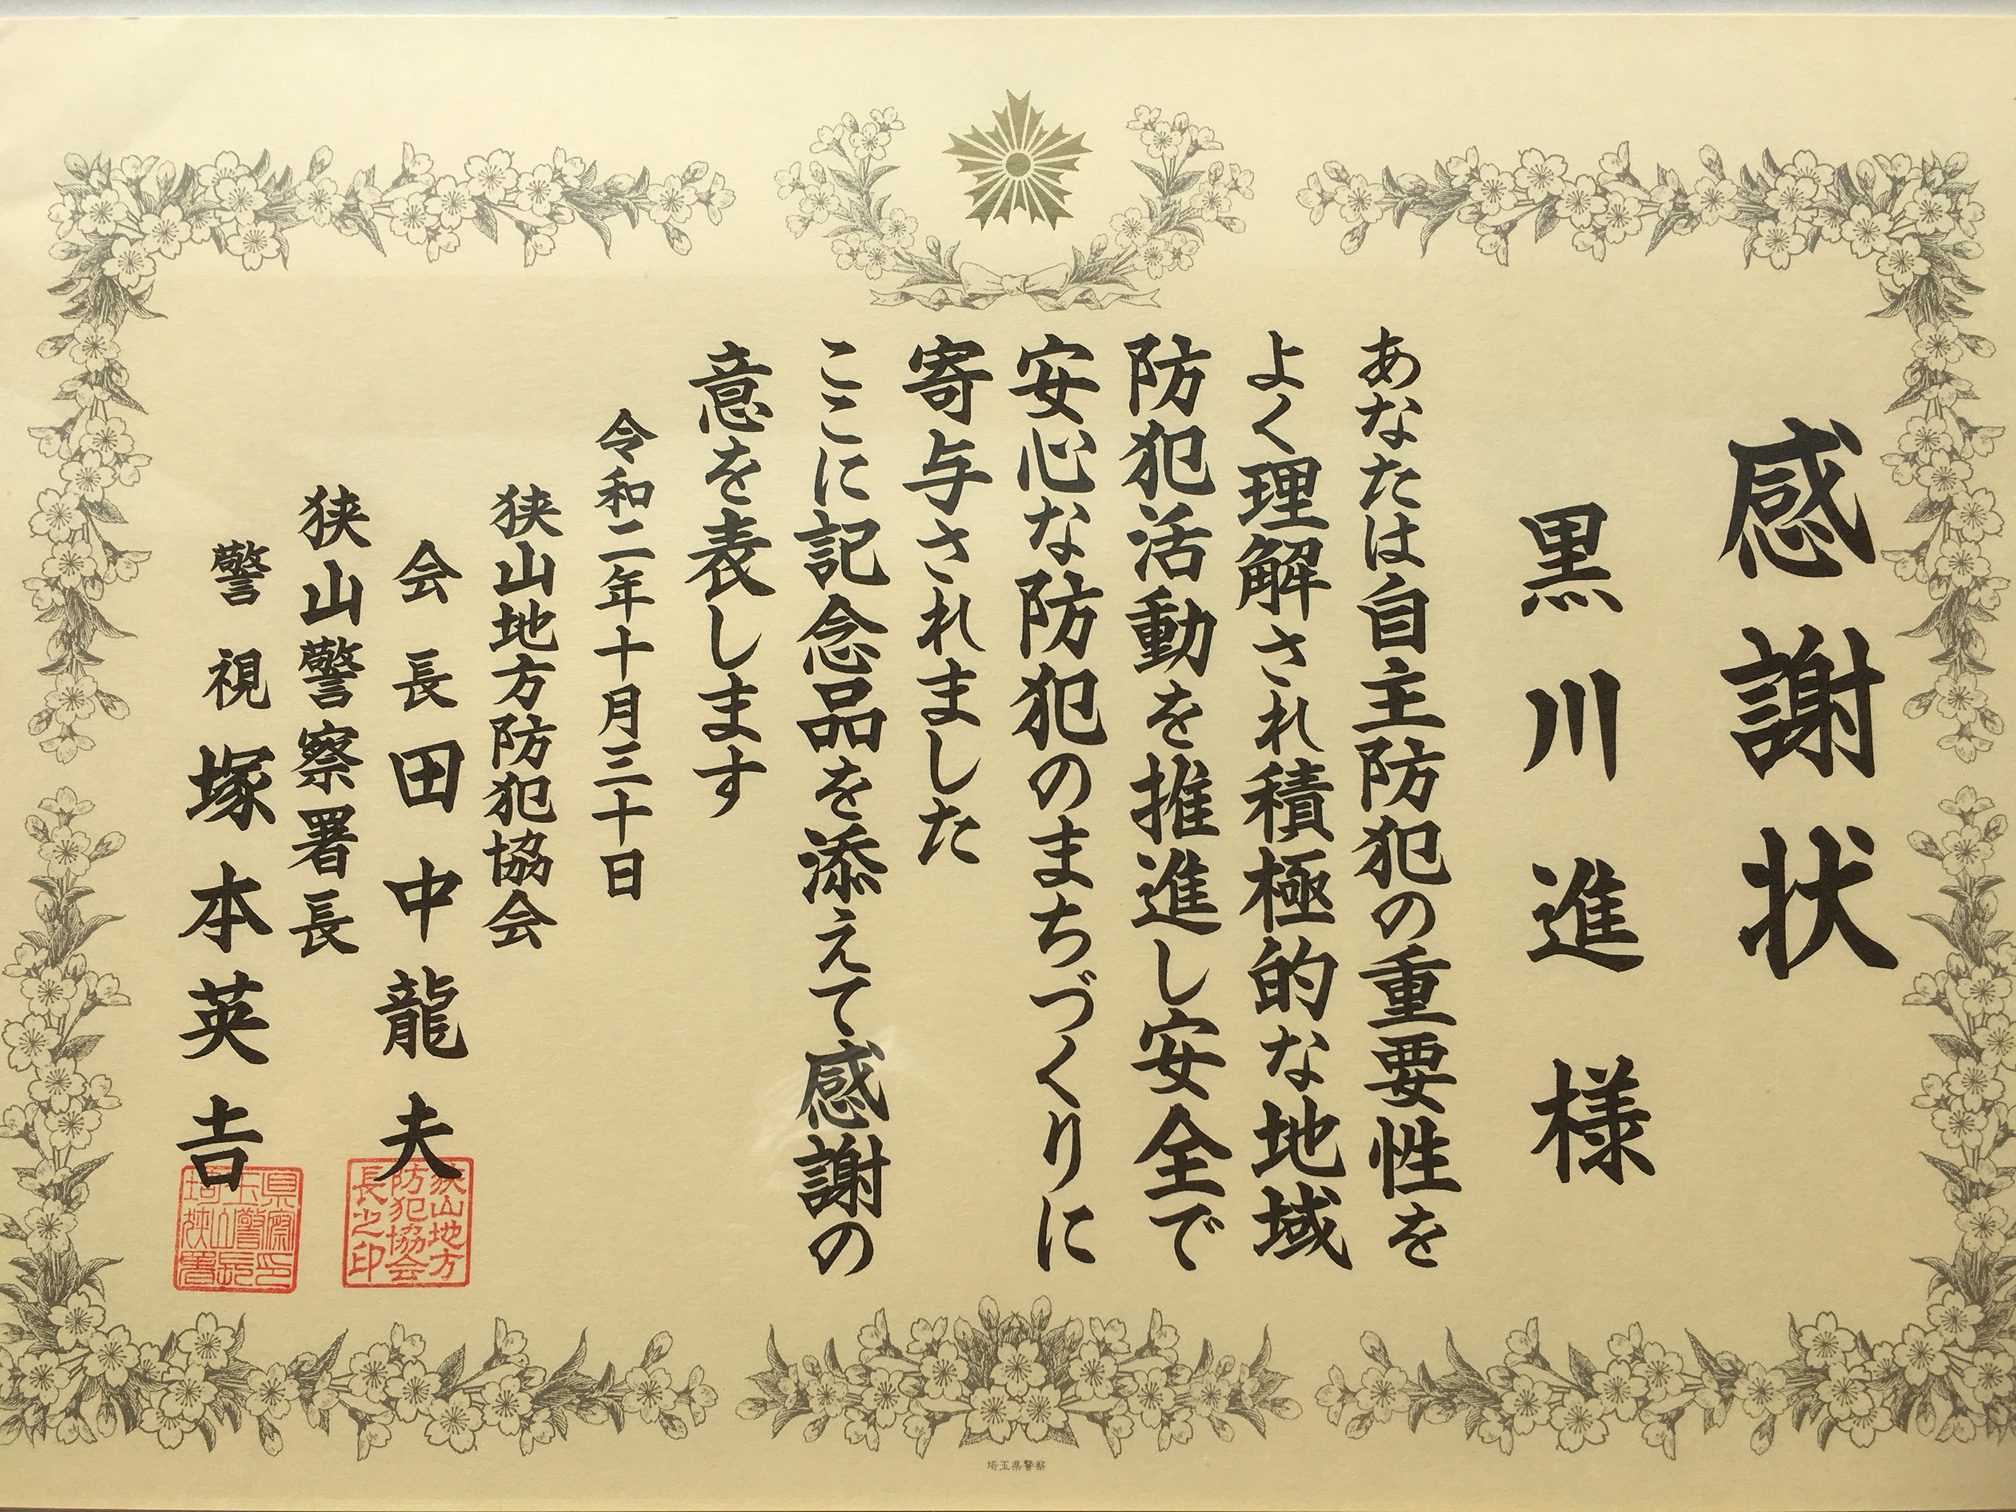 感謝状
黒川進様
あなたは自主防犯の重要性を
よく理解され積極的な地域
防犯活動を推進し安全で
安心な防犯のまちづくりに
寄与されました
ここに記念品を添えて感謝の
意を表します
令和二年十月三十日
狭山地方防犯協会
会長田中龍夫
狭山地方
防犯協会
長之印
狭山警察署長
警視塚本英吉
埼玉県警察